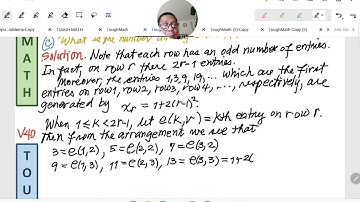 TOUGHMATH
ToughMath
ToughMath (2)-Copy
ToughMath-Copy (3)
(c) What is the number
Solution. Note that each row has an odd number of entries.
In fact, on row r there 2r-1 entries.
Moreover, the entries 1,3,9,19,... which are the first
entries on row1, row2, row3, row4, ..., respectively, are
generated by x_r = 1+2(r-1)².
When 1 ≤ k ≤ 2r-1, let e(k,r) = kth entry on row r.
Then from the arrangement we see that
3=e(1,2), 5=e(2,2), 7=e(3,2)
9=e(1,3), 11=e(2,3), 13=e(3,3)=1+2(
MATH
V40
TOU